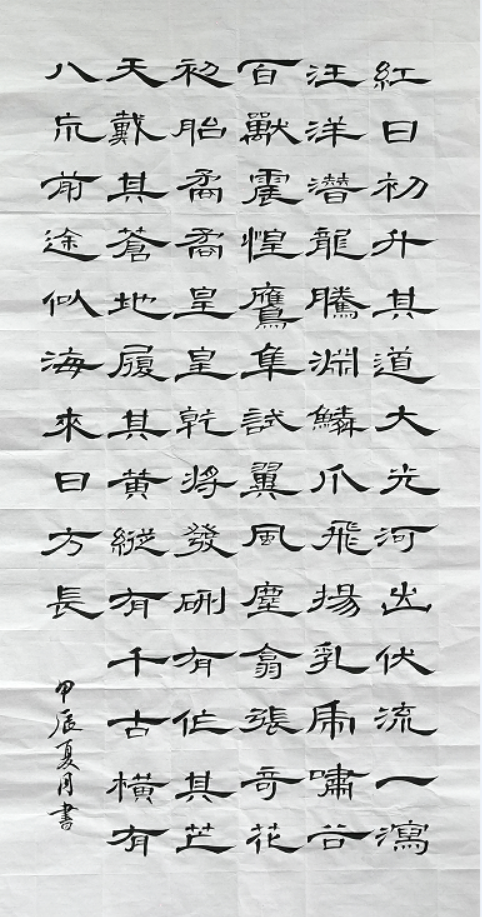 紅日初升其道大光河出伏流一瀉
汪洋潛龍騰淵鱗爪飛揚乳虎嘯谷
百獸震惶鷹隼試翼風塵翕張奇花
初胎矞矞皇皇乾將發硎有作其芒
天戴其蒼地履其黄縱有千古橫有
八巟前途似海來日方長
甲辰夏月書